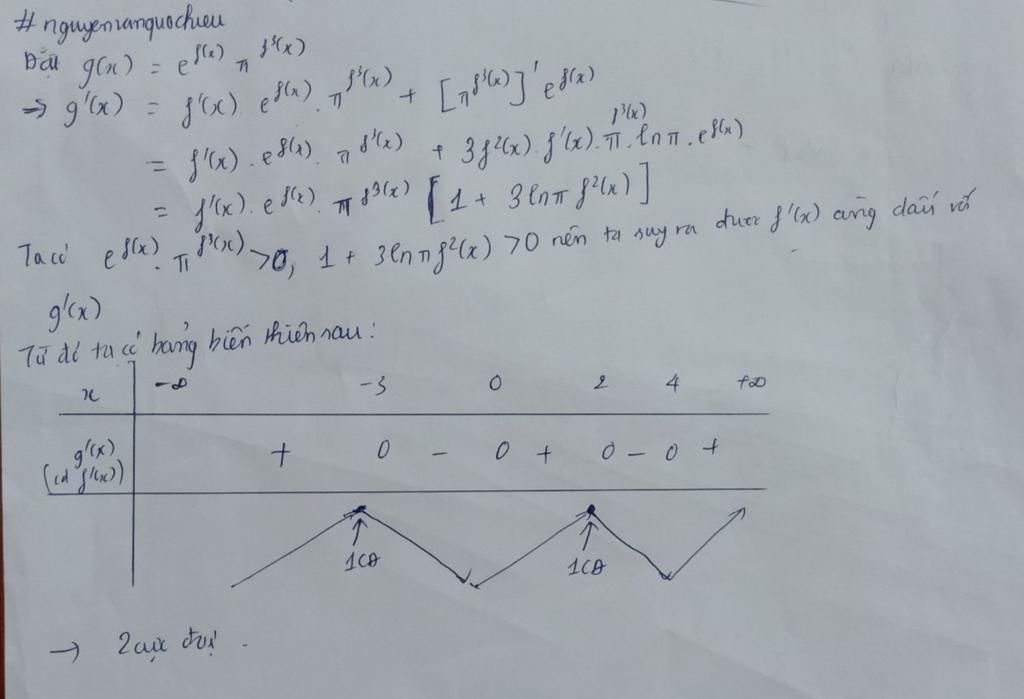 #nguyenvanquochieu
Đặt g(x) = e^{f(x)} π^{f³(x)}
⇒ g'(x) = f'(x) e^{f(x)} . π^{f³(x)} + [π^{f³(x)}]' e^{f(x)}
= f'(x) . e^{f(x)} . π^{f³(x)} + 3f²(x) . f'(x) . π^{f³(x)} . lnπ . e^{f(x)}
= f'(x) . e^{f(x)} . π^{f³(x)} [1 + 3lnπ f²(x)]
Ta có e^{f(x)} . π^{f³(x)} >0, 1 + 3lnπf²(x) >0 nên ta suy ra được f'(x) cùng dấu với
g'(x)
Từ đó ta có bảng biến thiên sau:
x -∞ -3 0 2 4 +∞
g'(x) + 0 - 0 + 0 - 0 +
(cd f'(x))
1CĐ 1CĐ
→ 2 cực đại.